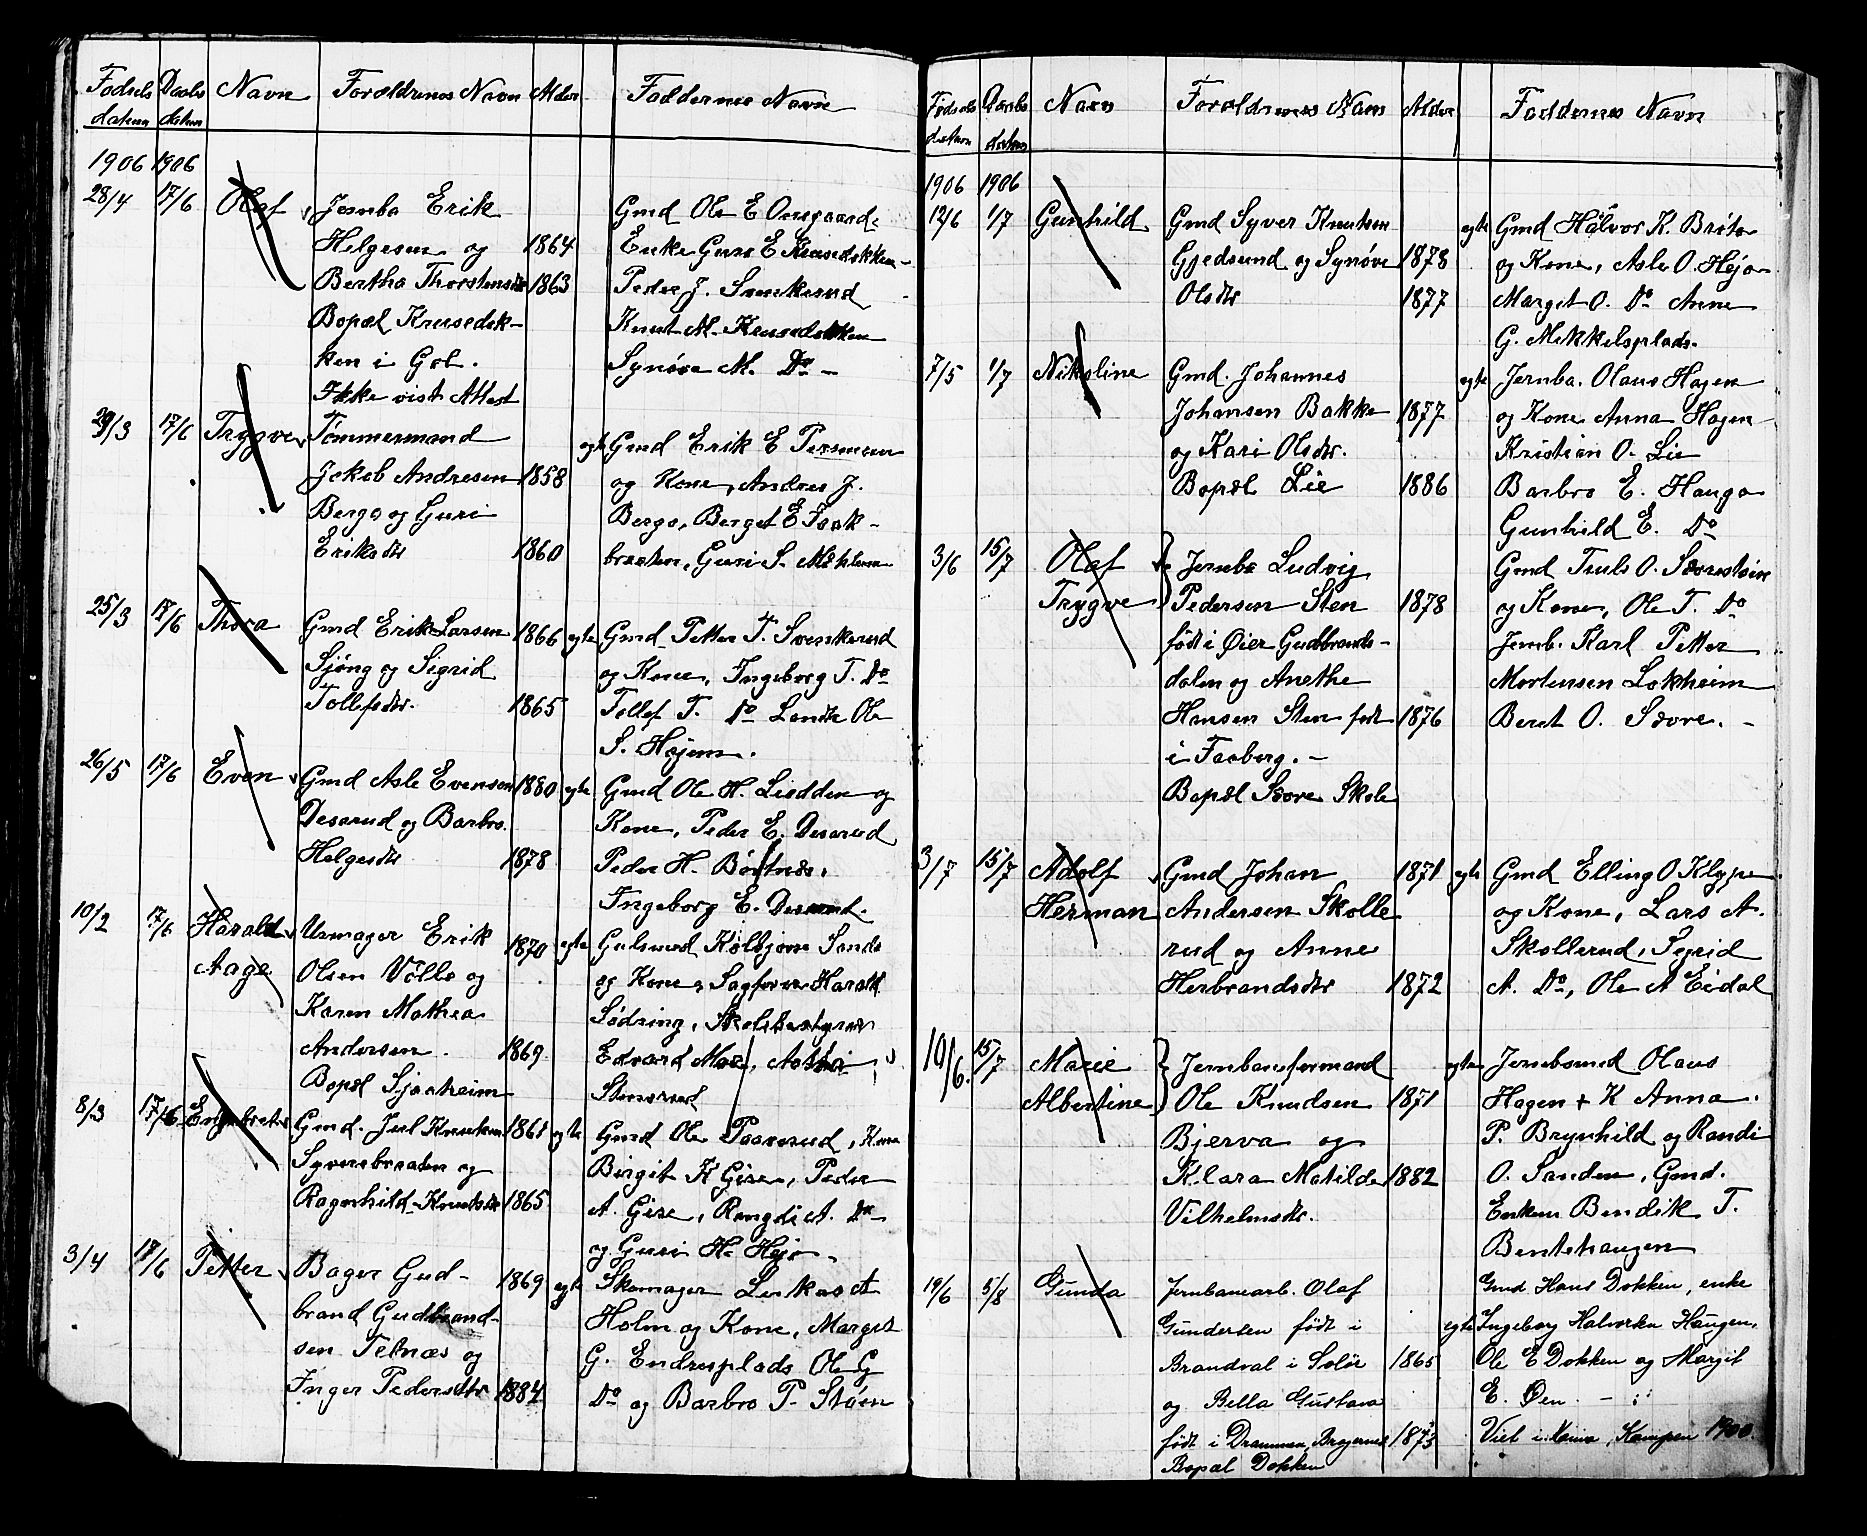 Fødsels Daabs Navn Forældrenes Navn Alder Faddernes Navn
datum datum
1906 1906
28/4 17/6 Olaf Jernba Erik Gmd Ole E
Helgesen og 1864 Enke Guro E Krusedokken
Bertha Thorstensdtr 1863 Peder J. Svenkerud
Bopæl Krusedok- Knut M. Krusedokken
ken i Gol. Synøve M. Do -
Ikke vist Attest
29/3 17/6 Trygve Tømmermand egte Gmd Erik E Persmoen
Jakob Andresen 1858 og Kone, Andres J.
Berga og Guri Berga, Berget E
Eriksdtr 1860 braaten, Guri S.
25/3 17/6 Thora Gmd Erik Larsen 1866 egte Gmd Petter T. Svenkerud
Sjong og Sigrid og Kone, Ingeborg T. Do
Tollefsdtr. 1865 Tollef T. Do Ole
S. Hajem.
26/5 17/6 Even Gmd Asle Evensen 1880 egte Gmd Ole H. Liodden og
Desarud og Barbro Kone, Peder E. Desarud
Helgesdtr 1878 Peder H. Børtnes,
Ingeborg E. Desarud.
10/2 17/6 Harald Urmager Erik 1870 egte Gulsmed Kolbjørn Sando
Aage Olsen Völlo og og Kone, Sagfører Harald
Karen Mathea Södring, Skolebestyrer
Andersen. 1869 Edvard Moe,
Bopæl Sjaaheim
8/3 17/6 Engebret Gmd. Jul Knutsen 1861 egte Gmd Ole Kone
Syversbraaten og Birgit K Gise, Peder
Ragnhild Knutsdtr 1865 A. Gise, Rangdi A. Do
og Guri H. Hejo
3/4 17/6 Petter Bager Gud- 1869 egte Skomager Lukas A
brand Gudbrand- Holm og Kone, Marget
sen Tetnæs og G. Endresplads Ole G
Inger Pedersdtr 1884 Do og Barbro P. Støen
Fødsels Daabs Navn Forældrenes Navn Alder Faddernes Navn
datum datum
1906 1906
12/6 1/7 Gunhild Gmd Syver Knutsen egte Gmd Halvor K. Bröto
Gjedsund og Synøve 1878 og Kone, Asle O. Hejo
Olsdtr 1877 Marget O. Do Anne
G. Mikkelsplads.
7/5 1/7 Nikoline Gmd. Johannes egte Jernba. Olaus Hagen
Johansen Bakke 1877 og Kone Anna Hagen
og Kari Olsdtr. Kristian O. Lie
Bopæl Lie 1886 Barbro E. Haugo
Gunhild E. Do
3/6 15/7 Olaf Jernba Ludvig Gmd Truls O. Sævrestøin
Trygve Pedersen Sten 1878 og Kone, Ole T. Do
født i Øier Gudbrands- Jernb. Karl Petter
dalen og Anethe Mortensen Lokheim
Hansen Sten født 1876 Berit O. Sævre. -
i Faaberg. -
Bopæl Sævre Skole
3/7 15/7 Adolf Gmd Johan 1871 egte Gmd Elling O Klype
Herman Andersen Skolle og Kone, Lars A.
rud og Anne Skollerud, Sigrid
Herbrandsdtr 1872 A. Do, Ole A Eidal
10/6. 15/7 Marie Jernbaneformand egte Jernbamd Olaus
Albertine Ole Knudsen 1871 Hagen + K Anna.
Bjerva og P. Brynhild og Randi
Klara Matilde 1882 O. Sanden, Gmd.
Vilhelmsdtr. Enkem Bendik T.
Bentehaugen
19/6 5/8 Gunda Jernbanearb. Olaf Gmd Hans Dokken, enke
Gundersen født i egte Ingeborg Halvorka Haugen,
Brandval i Solør 1865 Ole E Dokken og Margit
og Bella Gustava E. Øen -
født i Drammen, Bragernes 1873 Viet i Kampen 1900.
Bopæl Dokken